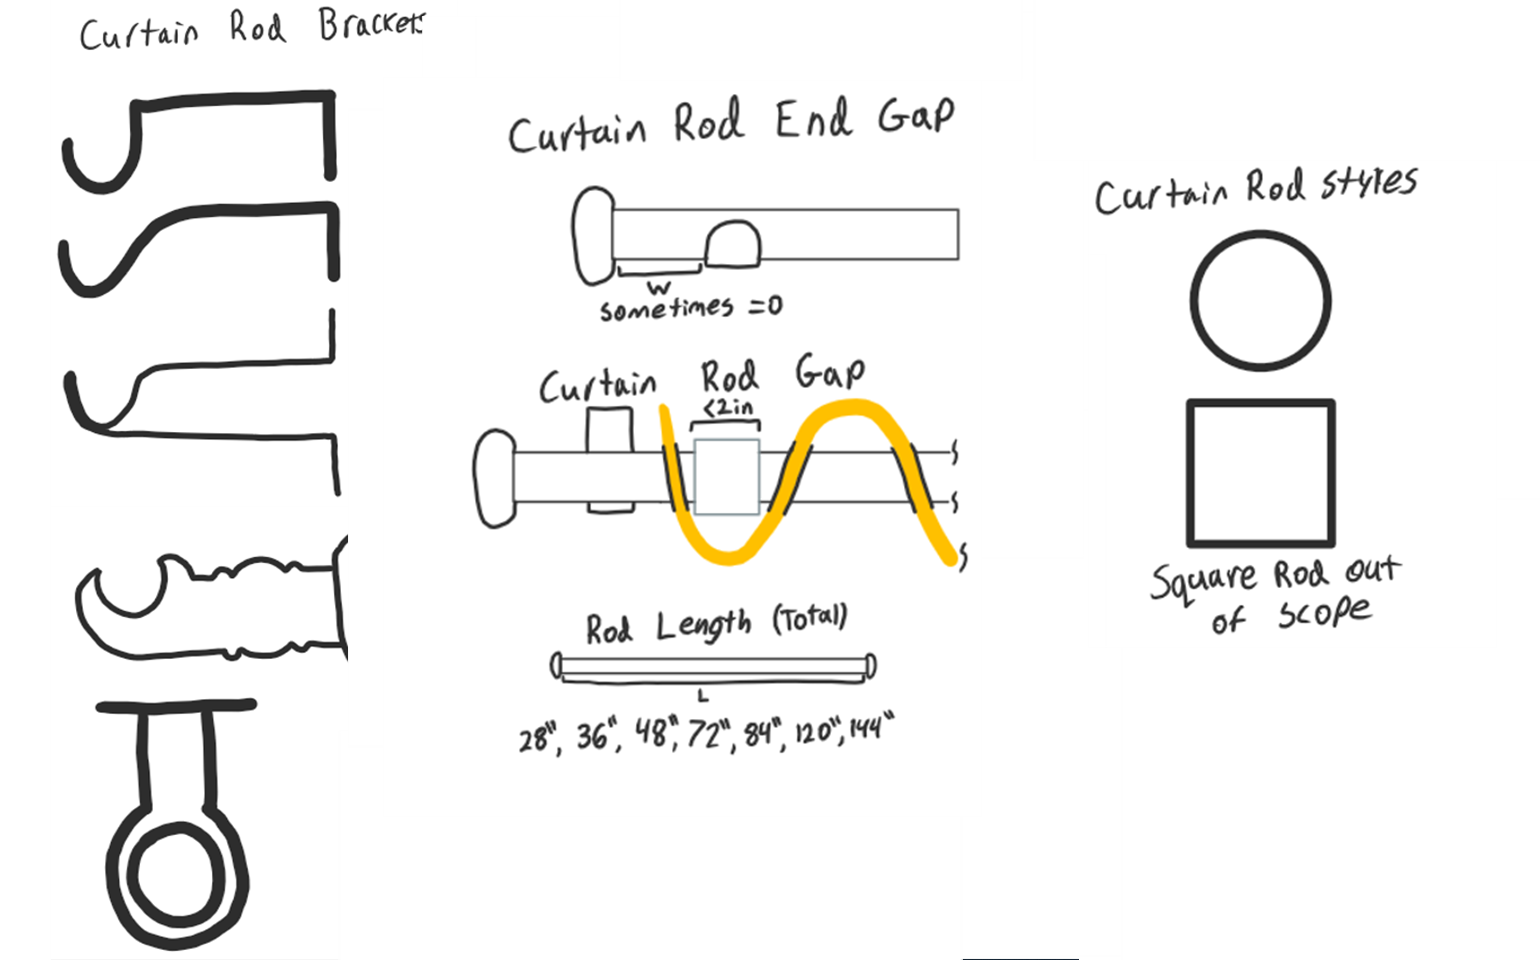 Curtain Rod Brackets
Curtain Rod End Gap
w
sometimes =0
Curtain Rod Gap
<2in
Rod Length (Total)
L
28", 36", 48", 72", 84", 120", 144"
Curtain Rod styles
Square Rod out
of scope